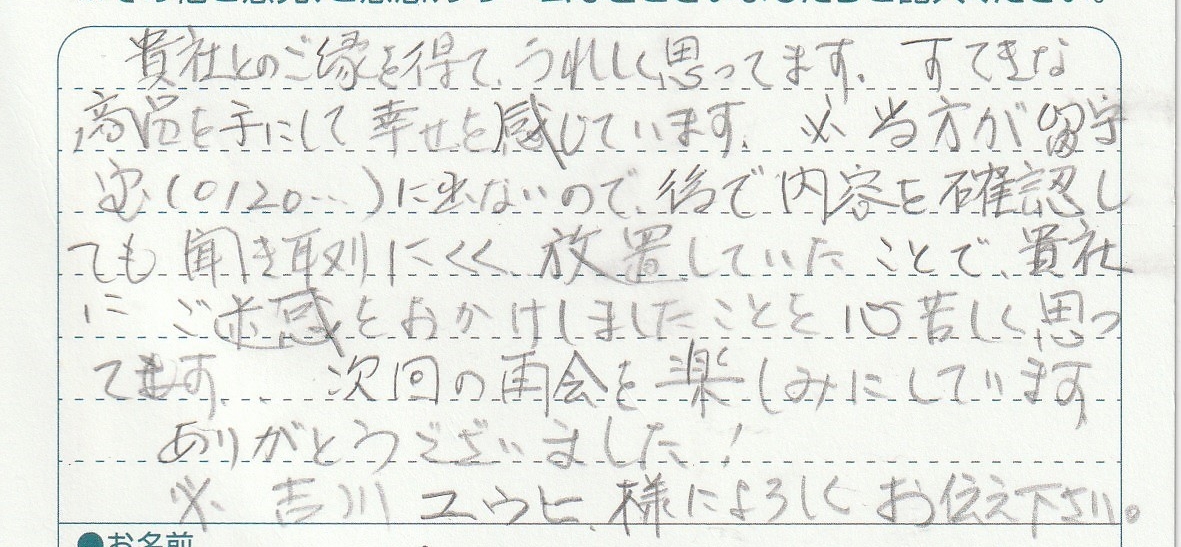 貴社とのご縁を得て、うれしく思ってます。すてきな
商品を手にして幸せを感じています。※当方が留守
宅(0120…)に出ないので、後で内容を確認し
ても聞き取りにくく、放置していたことで、貴社
にご迷惑をおかけしましたことを心苦しく思っ
てます。、次回の再会を楽しみにしています
ありがとうございました!
※吉川ユウヒ様によろしくお伝え下さい。
●お名前